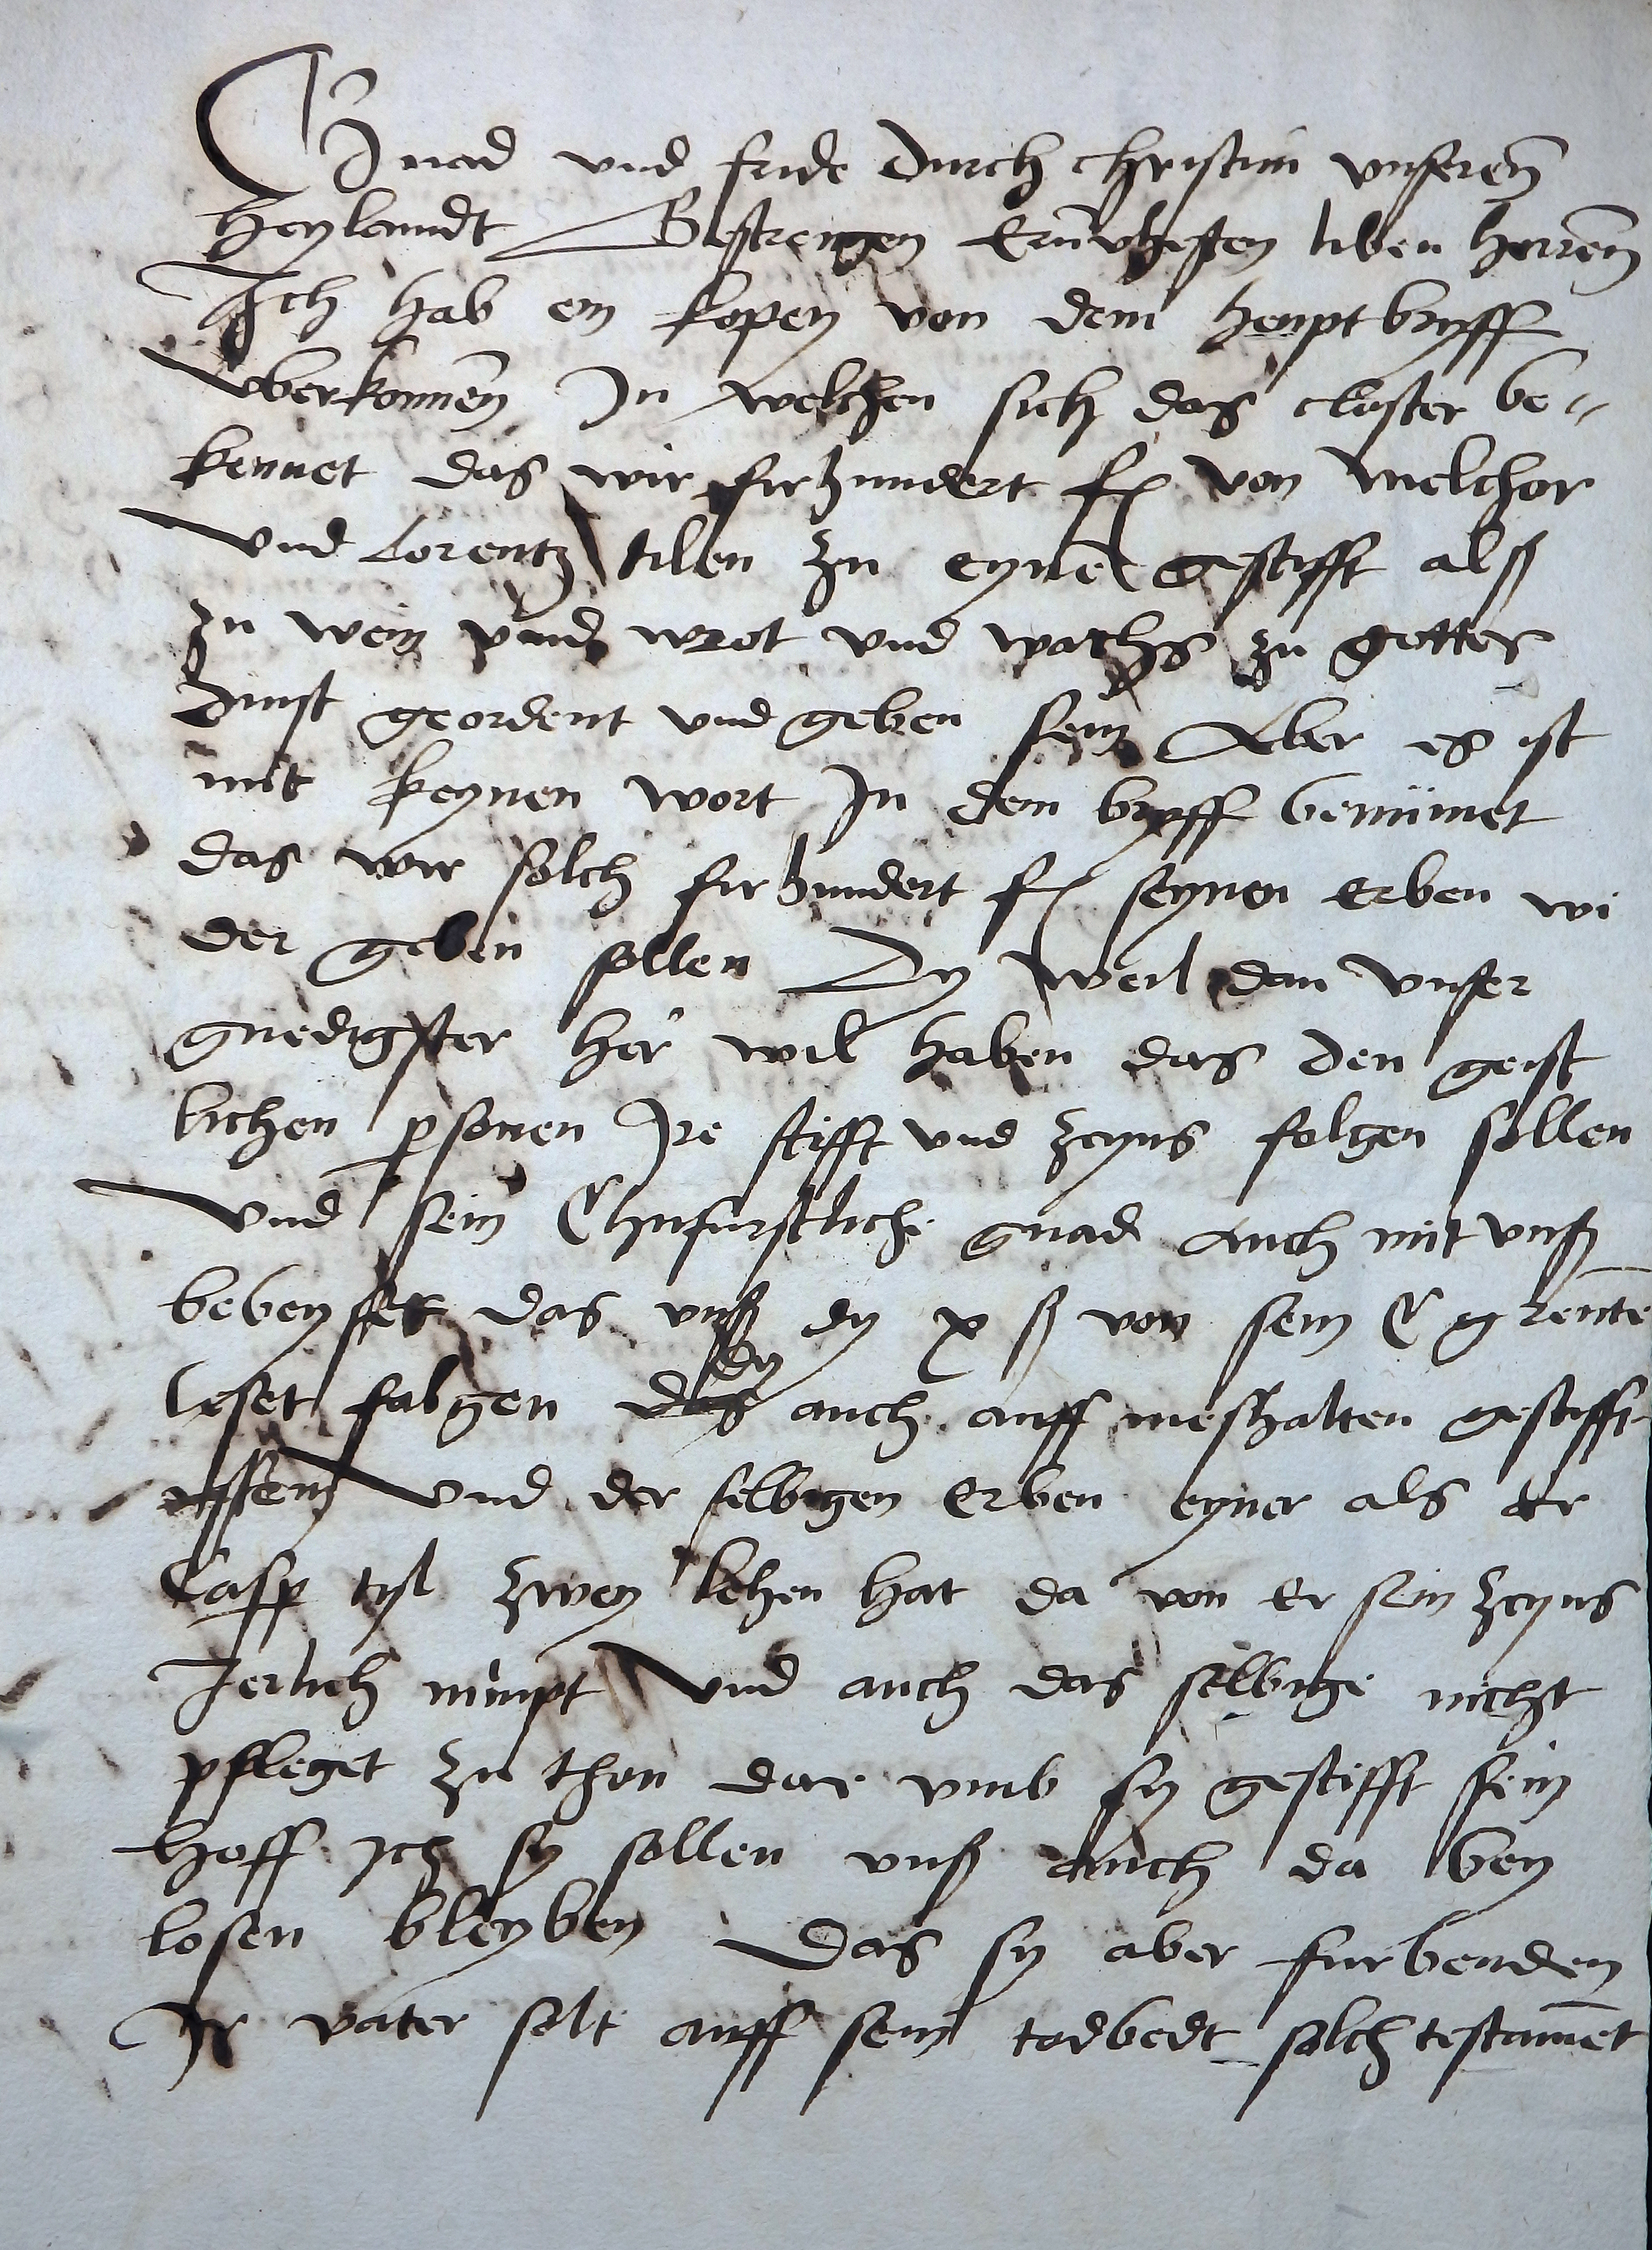 Gnad vnd fride durch christum vnseren
heylandt Gestrengen Ernvhesten liben herren
Ich hab ein kopey von dem heuptbryff
vberkomen In welchen sich das closter be-
kennet das wir firhundert fl von melchor
vnd Lorentz tilen zu eynem gestifft alß
zu wein vnd brot vnd wachs zu gottes
dinst geordent vnd geben sein Aber es ist
mit keynen wort In dem bryff benumet
das wir solch firhundert fl seynen erben wi
der geben sollen Dy weil dan vnser
gnedigster her wil haben das den geist
lichen psonen Ire stifft vnd zeyns folgen sollen
vnd sein Churfurstliche gnad auch mit vnß
das vnß dy x ß von sein C g rente
leset folgen dy auch auff meshalten gestifft
vnd der selbigen erben eyner als er
Casp tyl zwey lehen hat da von er sein zeyns
Jerlich nimpt vnd auch das selbige nicht
pfleget zu thon dar vmb sy gestifft sein
hoff ich sy sollen vnß auch da bey
losen bleyben Das sy aber furbenden
Ir vater solt auff sein todbedt solch testament